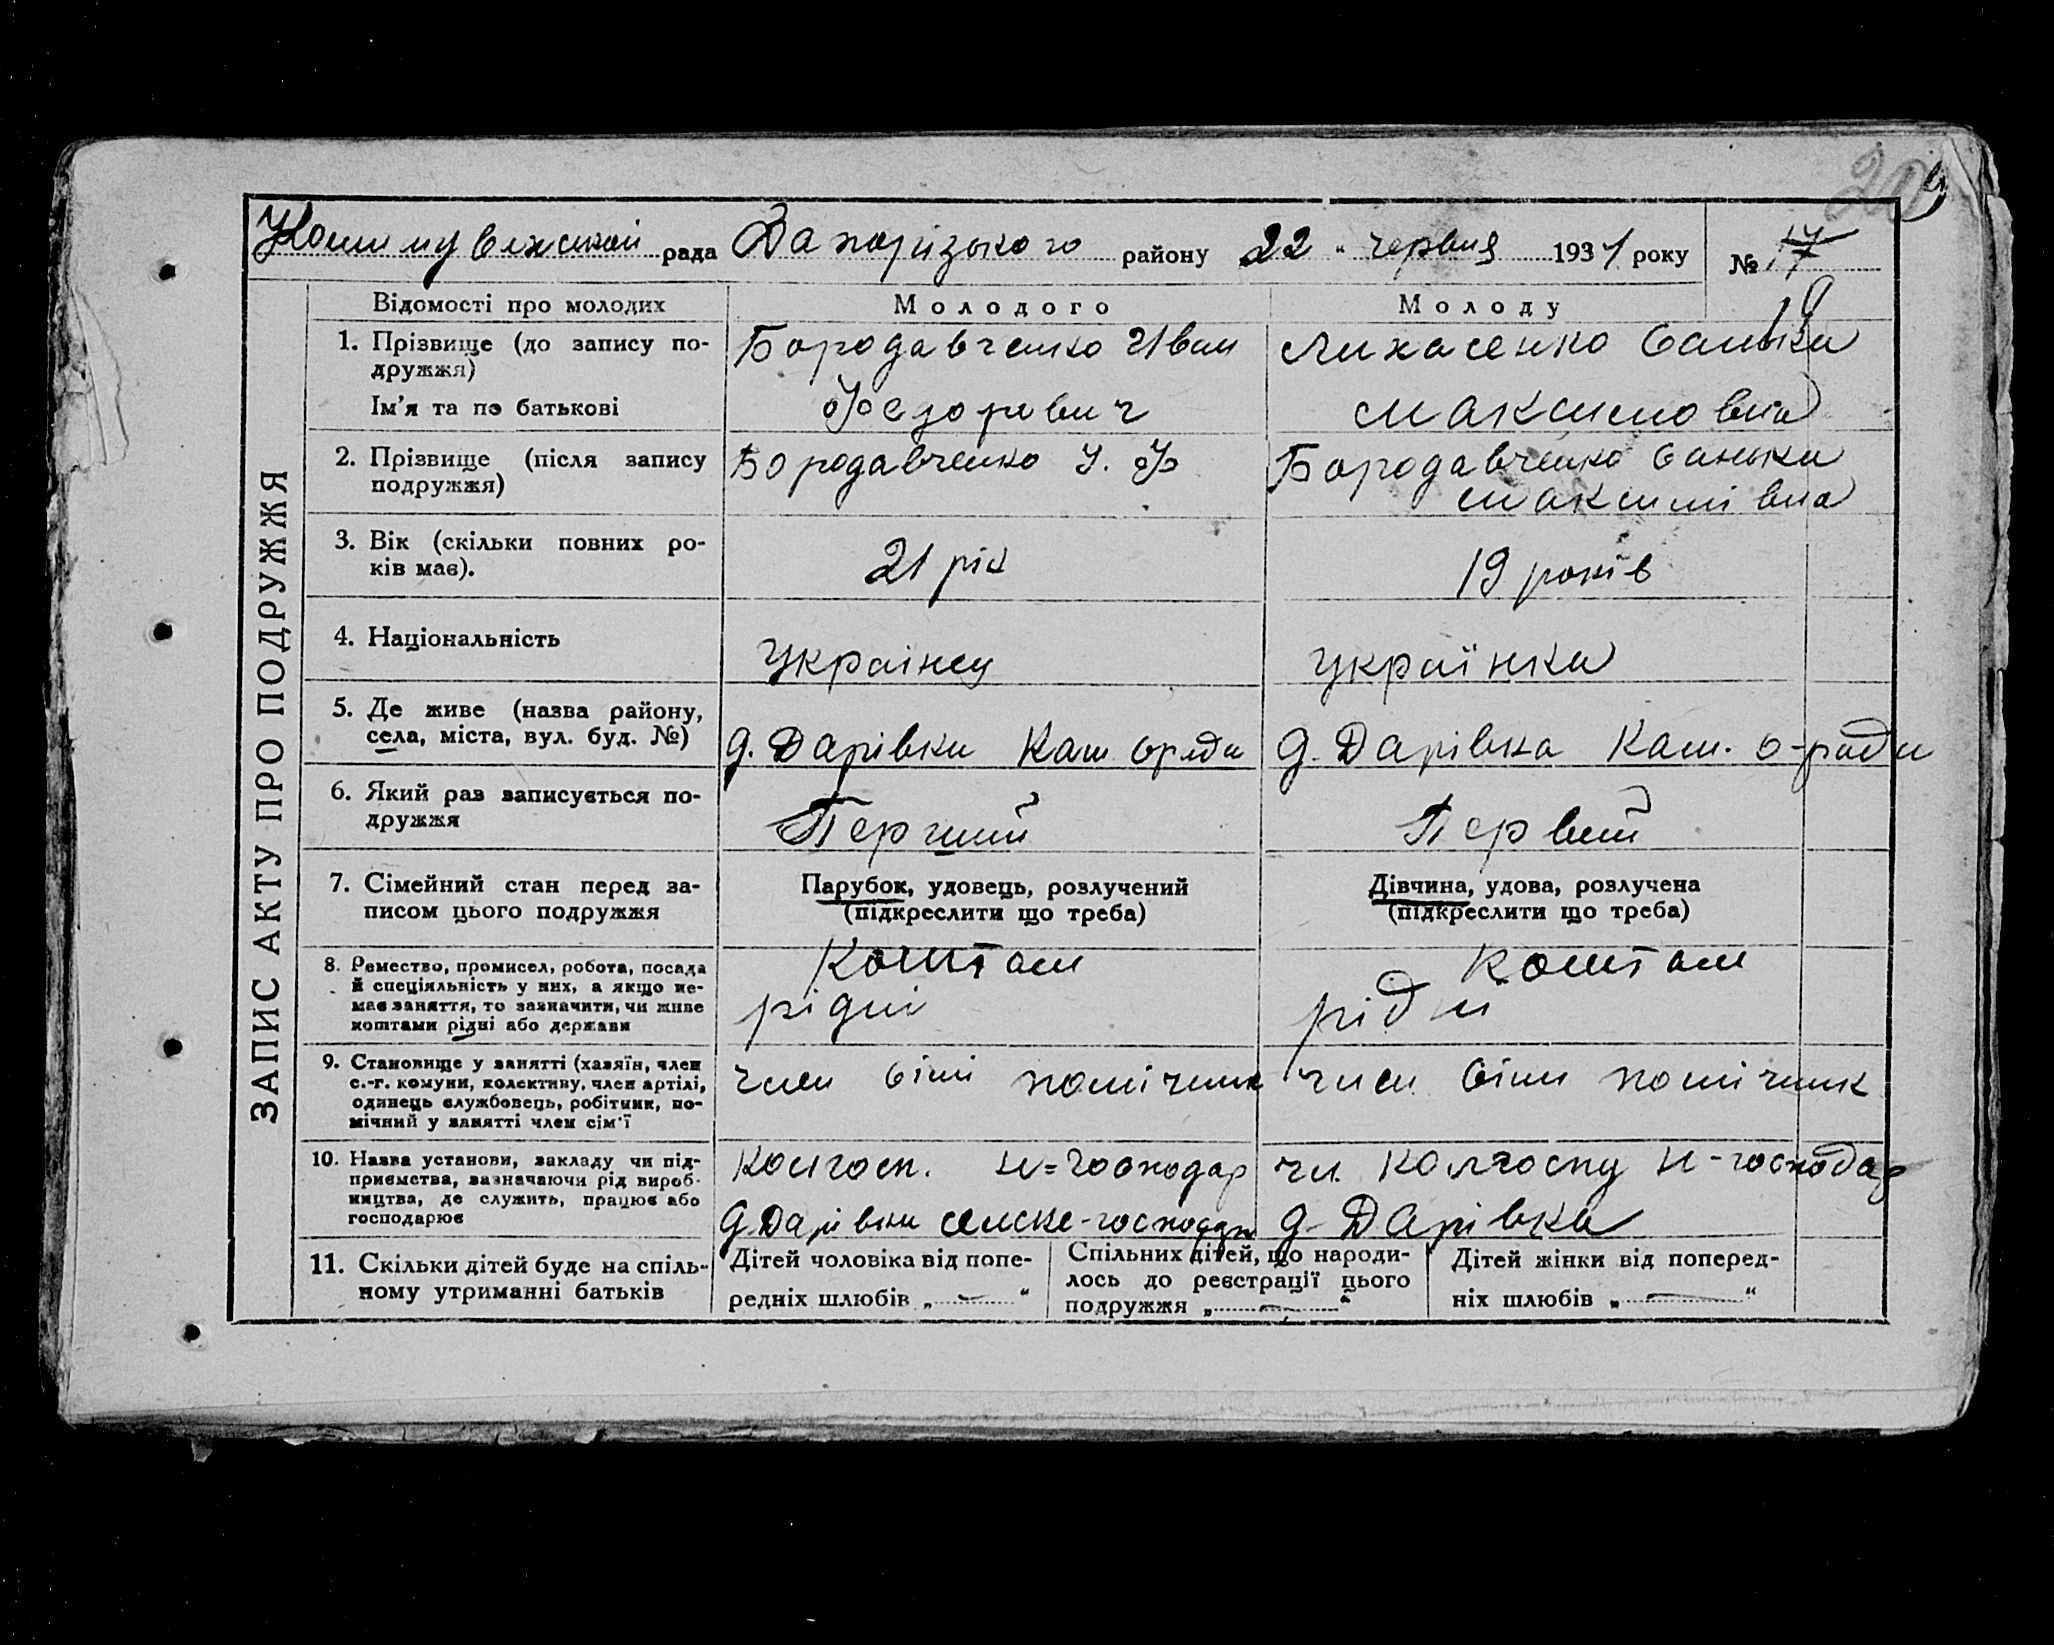 рада Запорізького району 22 " червня 1931 року № 17
19
ЗАПИС АКТУ ПРО ПОДРУЖЖЯ
Відомості про молодих Молодого Молоду
1. Прізвище (до запису по- Бородавченко Иван Лихасенко Санька
дружжя)
Ім'я та по батькові Федорович Максимовна
2. Прізвище (після запису Бородавченко И. Ф Бородавченко Санька
подружжя) Максимівна
3. Вік (скільки повних ро- 21 рік 19 років
ків має).
4. Національність Українец Українка
5. Де живе (назва району, д. Дарівки Каш с ради д. Дарівка Каш. с-ради
села, міста, вул. буд. №)
6. Який раз записується по- Перший Первий
дружжя
7. Сімейний стан перед за- Парубок, удовець, розлучений Дівчина, удова, розлучена
писом цього подружжя (підкреслити що треба) (підкреслити що треба)
8. Ремество, промисел, робота, посада Коштам Коштам
й спеціяльність у них, а якщо не-
має заняття, то зазначити, чи живе рідні рідні
коштами рідні або держави
9. Становище у занятті (хазяїн, член член сімї помічник член сімї помічник
с.-г. комуни, колективу, член артілі,
одинець службовець, робітник, по-
мічний у занятті член сім'ї
10. Назва установи, закладу чи під- Колгосп. Н-господар чл. Колгоспу Н-господар
приємства, зазначаючи рід вироб-
ництва, де служить, працює або
господарює д. Дарівки селске-господар д. Дарівка
11. Скільки дітей буде на спіль-
ному утриманні батьків
Дітей чоловіка від попе-
редніх шлюбів „ — "
Спільних дітей, що народи-
лось до реєстрації цього
подружжя „ — "
Дітей жінки від поперед-
ніх шлюбів „ — "